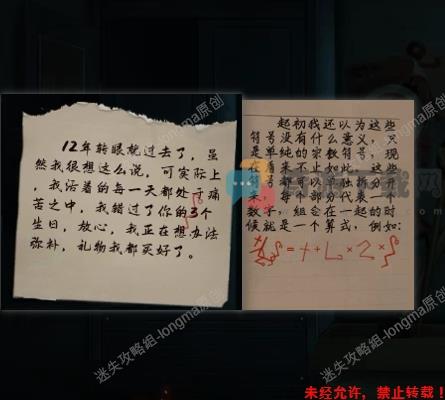 12年转眼就过去了，虽
然我很想这么说，可实际上
，我活着的每一天都处于痛
苦之中，我错过了你的3个
生日，放心，我正在想办法
弥补，礼物我都买好了。
起初我还以为这些
符号没有什么意义，只
是单纯的宗教符号，现
在看来不止如此，这些
符号都可以独拆分开
来，每个部分代表一个
数字，组合在一起的时
候就是一个算式，例如：
迷失攻略组-longma原创
迷失攻略组-longma原创
迷失攻略组-longma原创
迷失攻略组-longma原创
未经允许，禁止转载！